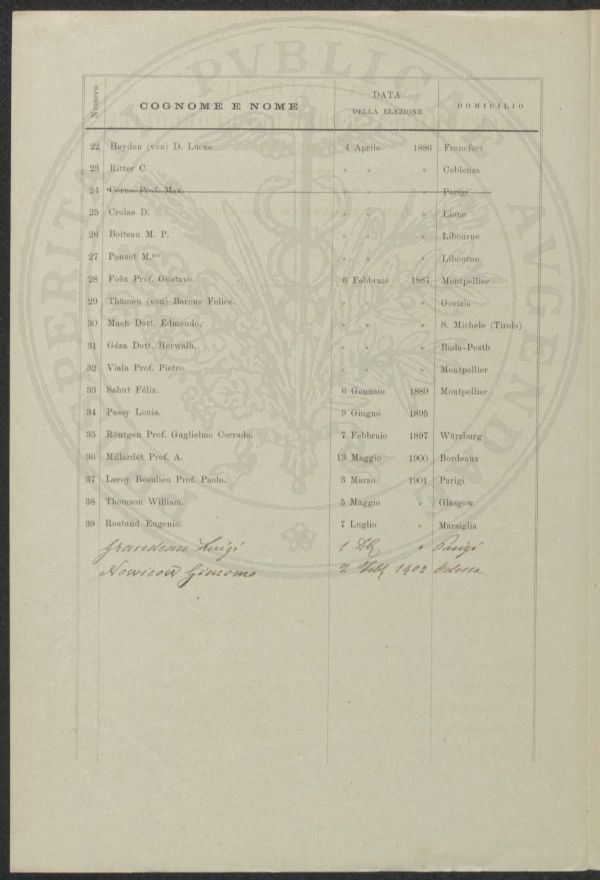 PERITAT PVBLICAE AVGENDAE
Numero COGNOME E NOME DATA DELLA ELEZIONE DOMICILIO
22 Heyden (von) D. Lucas. 4 Aprile 1886 Francfort
23 Ritter C. » » » Coblenza
24 Cornu Prof. Max. » » » Parigi
25 Crolas D. » » » Lione
26 Boiteau M. P. » » » Libourne
27 Ponsot M.me » » » Libourne
28 Foëx Prof. Gustavo. 6 Febbraio 1887 Montpellier
29 Thümen (von) Barone Felice. » » » Gorizia
30 Mach Dott. Edmondo. » » » S. Michele (Tirolo)
31 Géza Dott. Horwath. » » » Buda-Pesth
32 Viala Prof. Pietro. » » » Montpellier
33 Sahut Félix. 6 Gennaio 1889 Montpellier
34 Passy Louis. 9 Giugno 1895
35 Röntgen Prof. Guglielmo Corrado. 7 Febbraio 1897 Würzburg
36 Millardet Prof. A. 13 Maggio 1900 Bordeaux
37 Leroy Beaulieu Prof. Paolo. 3 Marzo 1901 Parigi
38 Thomson William. 5 Maggio » Glasgow
39 Rostand Eugenio. 7 Luglio » Marsiglia
Grandeau Luigi 1 » Parigi
Novicow Giacomo 2 Febb 1902 Odessa